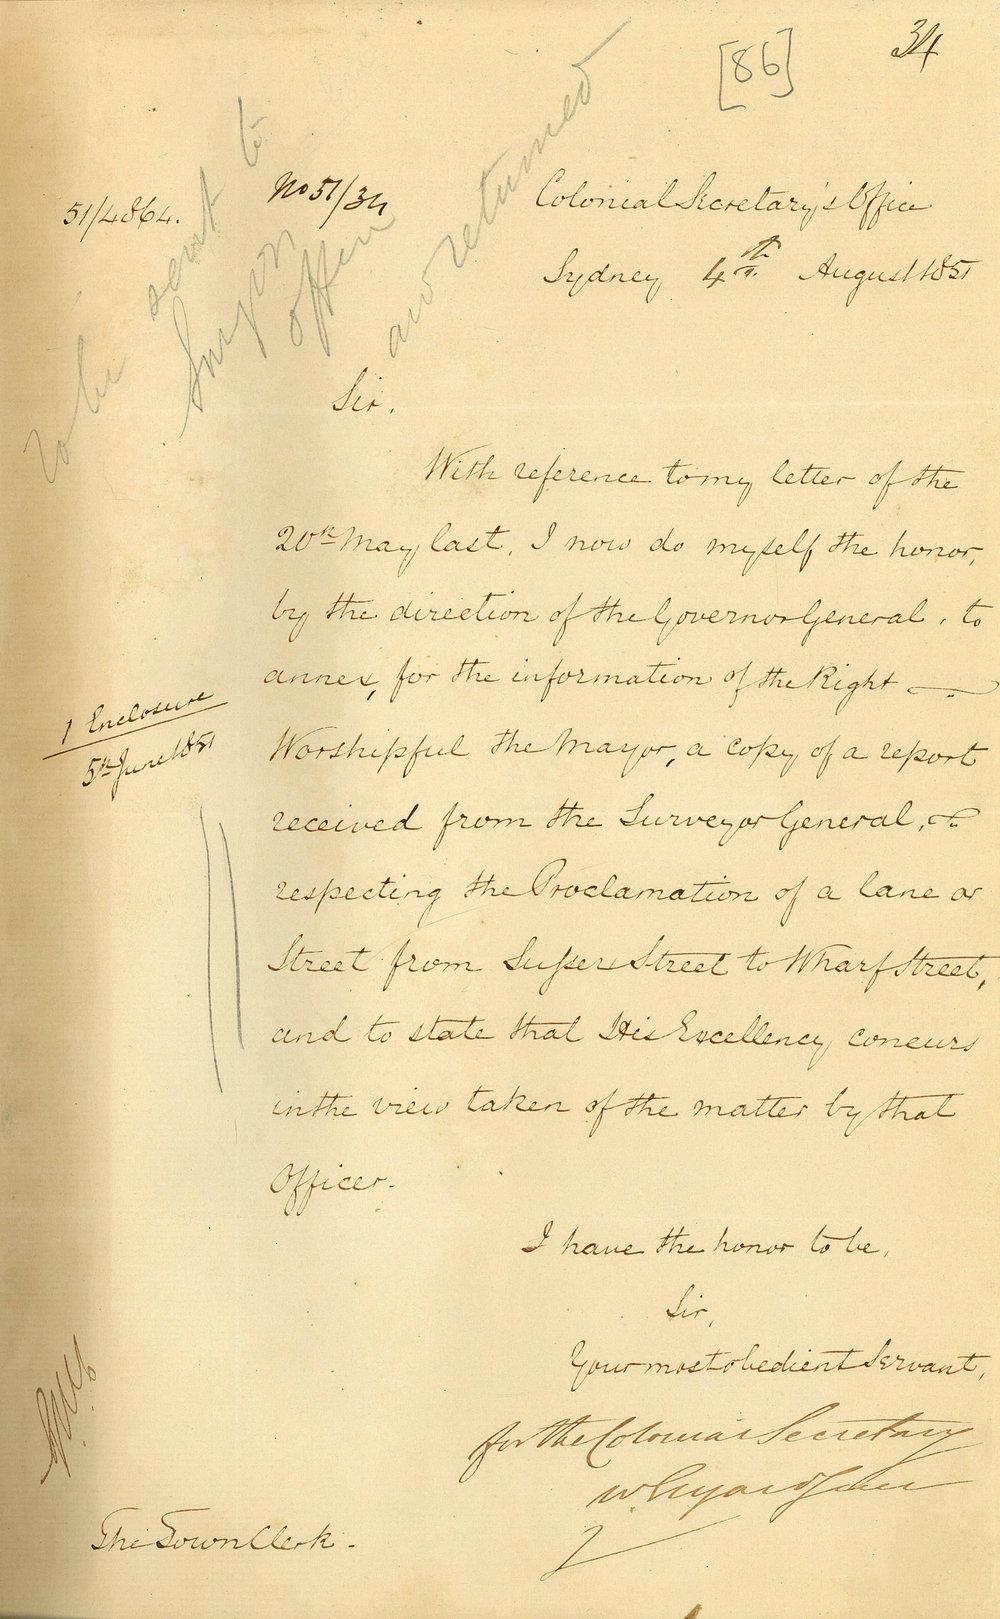 34
[86]
To be sent to
Surveyor
office
and returned
51/4864.
No 51/34
Colonial Secretary's Office
Sydney 4th August 1851
Sir,
With reference to my letter of the
20th May last, I now do myself the honor,
by the direction of the Governor General, to
annex, for the information of the Right
Worshipful the Mayor, a copy of a report
received from the Surveyor General,
respecting the Proclamation of a lane or
Street from Sussex Street to Wharf Street,
and to state that His Excellency concurs
in the view taken of the matter by that
Officer.
1 Enclosure
5th June 1851
I have the honor to be,
Sir,
Your most obedient Servant,
for the Colonial Secretary
W. Elyard Junr
The Town Clerk.